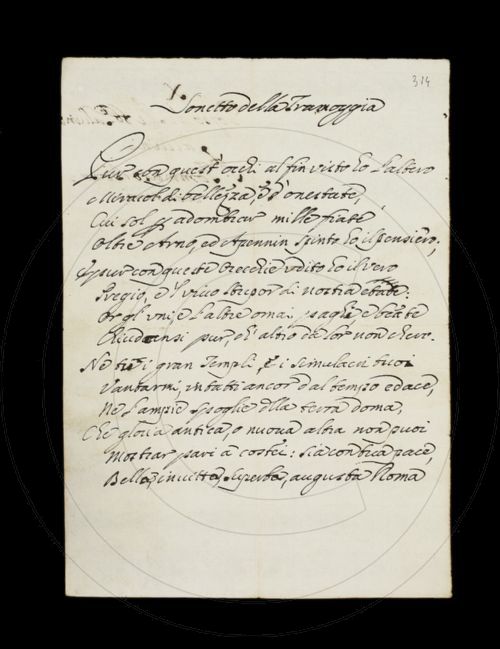 314
Sonetto della Tramoggia
Pur con quest'occhi al fin visto ho l'altero
Miracol di bellezza, e d'onestate,
Cui sol p adombrar mille fiate
Oltre Arno, ed Apennin spinto ho il pensiero;
E pur con queste orecchie udito ho il vero
Pregio, e 'l vivo stupor di nostra etate:
Or gli uni, e l'altre omai paghe e beate
Chiudansi pur, ch'altro da lor non chero.
Ne tu i gran Templi, e i simulacri tuoi
Vantarmi, intatti ancor dal tempo edace,
Ne l'ampie spoglie della terra doma,
Che gloria antica, o nuova altra non puoi
Mostrar pari a costei: sia con tua pace,
Bella, invitta, superba, augusta Roma